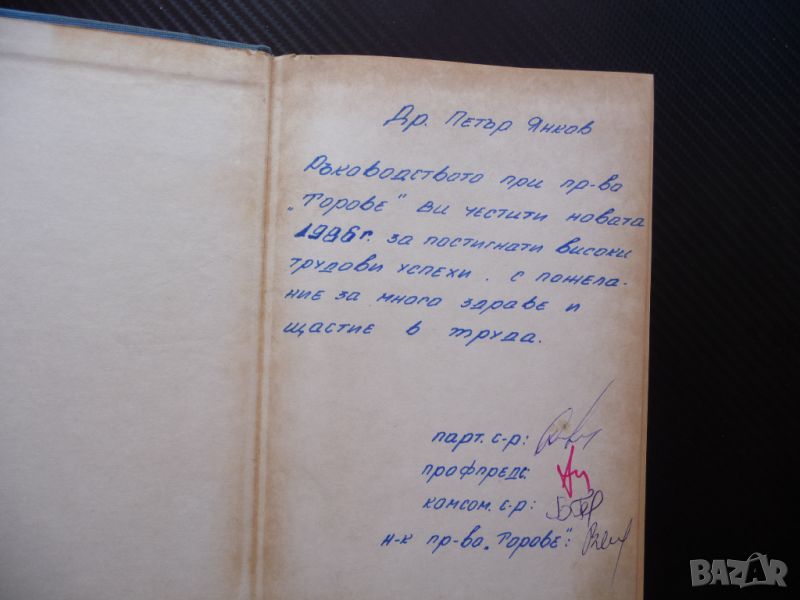 Др. Петър Янков
Ръководството при пр-во
„Торове" Ви честити новата
1986г. за постигнати високи
трудови успехи. с пожела-
ние за много здраве и
щастие в труда.
парт. с-р:
профпредс.
комсом. с-р:
н-к пр-во „Торове":
BAZAR